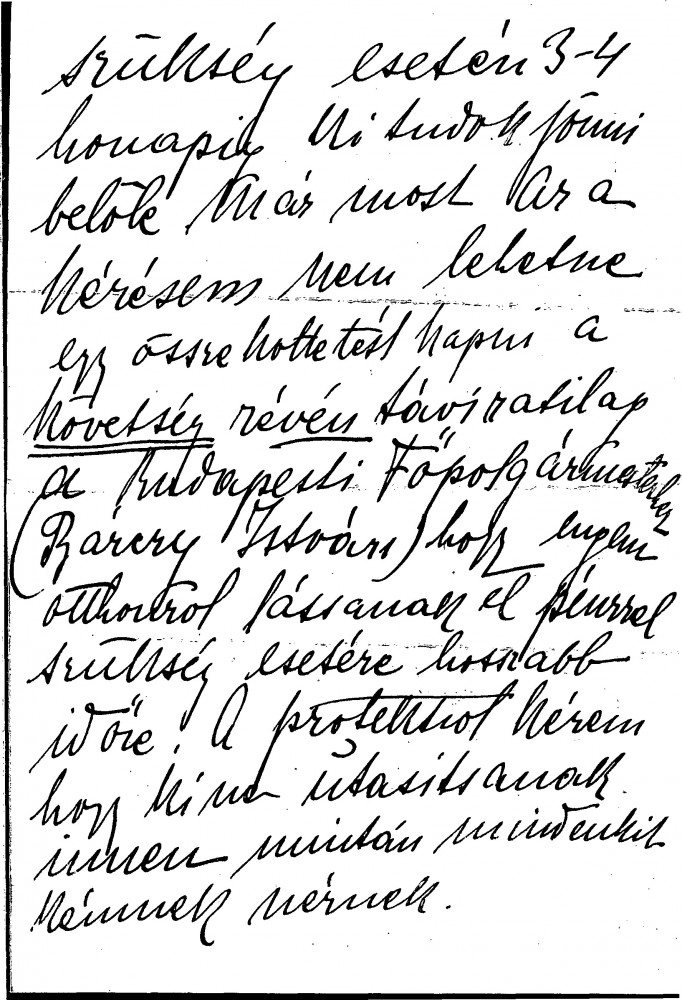 szükség esetén 3-4
honapig ki tudok jönni
belőle. Már most az a
kérésem nem lehetne
egy összeköttetést kapni a
követség révén táviratilag
a Budapesti Főpolgármesterhez
(Bárczy István) hogy engem
otthonrol lássanak el pénzzel
szükség esetére hosszabb
időre. A protektiot kérem
hogy ki ne utasitsanak
innen miután mindenkit
kémnek néznek.